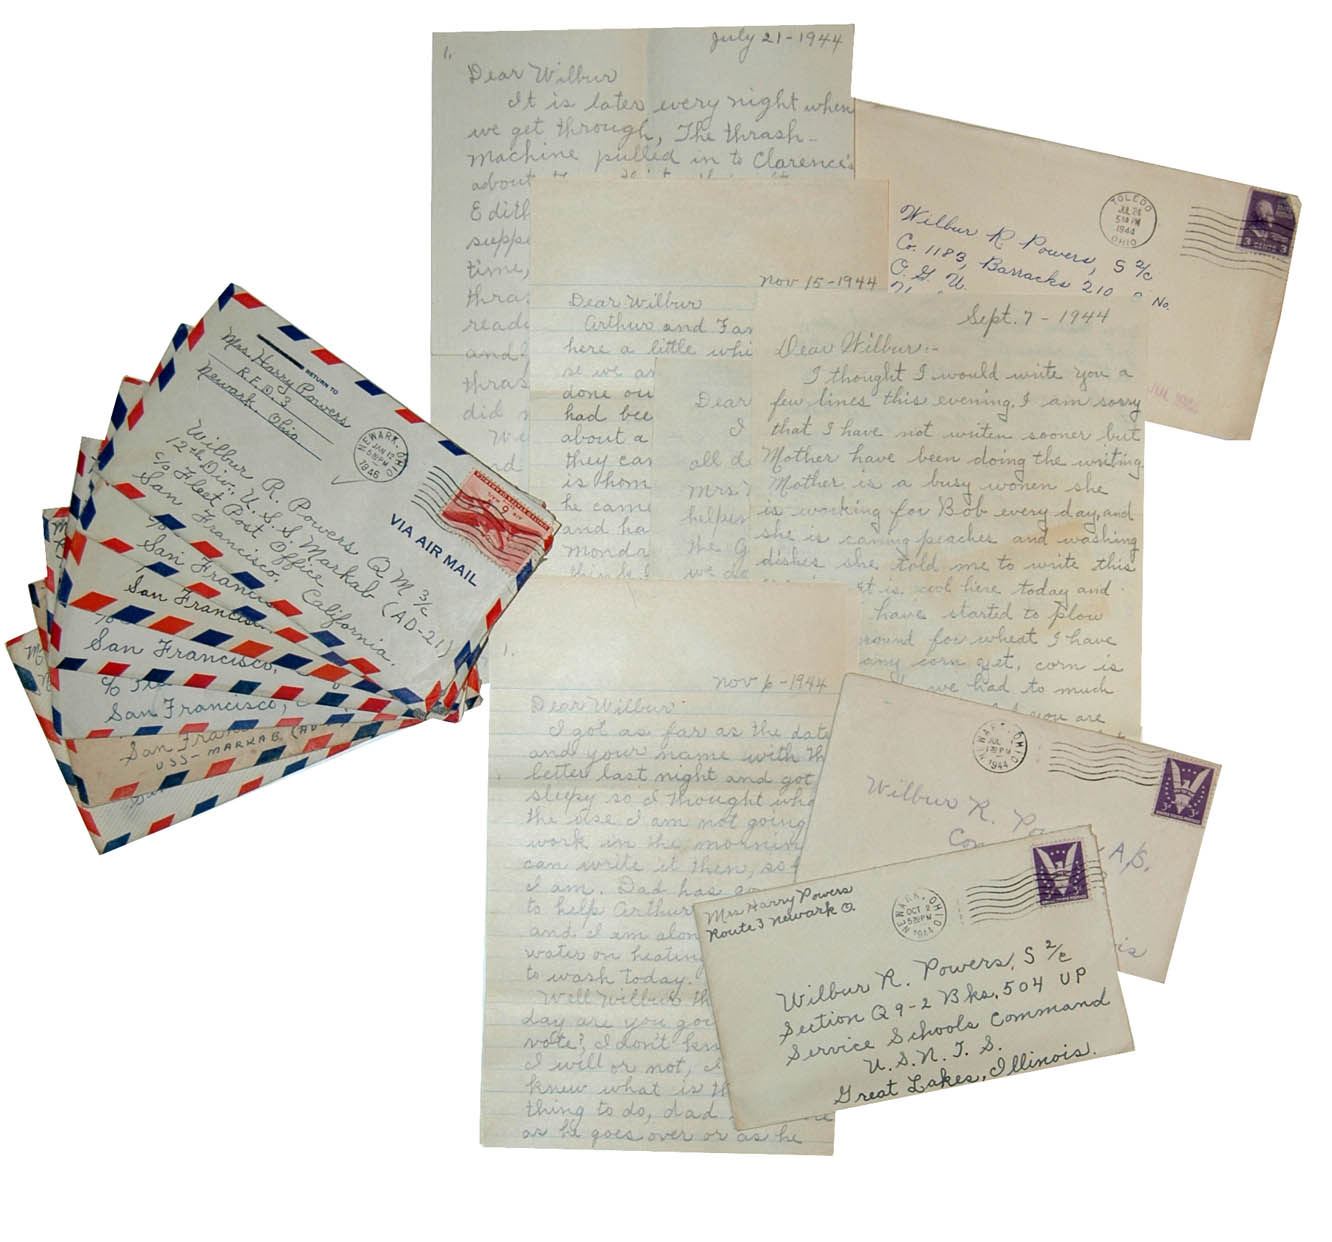 July 21-1944
1.
Dear Wilbur
It is later every night when
we get through, The thrash-
machine pulled in to Clarence's
about
Edith
suppe
time,
thras
read
and
thras
did
We
and
Wilbur R Powers, S 2/c
Co. 1183, Barracks 210
O. G. U.
No.
TOLEDO
JUL 24
5 30 PM
1944
OHIO
3 CENTS 3
Nov 15-1944
Dear Wilbur
Arthur and Fan
here a little whi
se we an
done ou
had bee
about a
they can
is hom
he came
and ha
Monda
think
Dear
I
all d
Mrs
helper
the G
we are
Sept. 7-1944
Dear Wilbur:-
I thought I would write you a
few lines this evening. I am sorry
that I have not writen sooner but
Mother have been doing the writing.
Mother is a busy women she
is working for Bob every day, and
she is caning peaches and washing
dishes she told me to write this
it is cool here today and
have started to plow
ground for wheat I have
any corn yet, corn is
we had to much
you are
RETURN TO
Mrs. Harry Powers
R.F.D. 3
Newark, Ohio
NEWARK, OHIO
JAN 12
5 30 PM
1946
VIA AIR MAIL
6¢
Wilbur R. Powers Q M 3/c
12th Div., U.S.S. Markab (AD-21)
c/o Fleet Post Office
San Francisco, California.
c/o
San Francis
San Francisco
c/o
San Francisco,
c/o Fle
San Francisco, C
San Fran
USS-MARKAB (AD
1.
Nov 6-1944
Dear Wilbur
I got as far as the date
and your name with th
letter last night and got
sleepy so I thought wha
the use I am not going
work in the mornin
can write it then, so
I am. Dad has go
to help Arthur
and I am alon
water on heating
to wash today.
Well Wilbur th
day are you goi
vote? I don't kn
I will or not,
knew what is th
thing to do, dad
as he goes over or as he
NEWARK, OHIO
JUL
1 30 PM
1944
Wilbur R. Po A/S.
Com
is
3¢
Mrs Harry Powers
Route 3 Newark O.
NEWARK, OHIO
OCT 2
5 30 PM
1944
3¢
Wilbur R. Powers, S 2/c
Section Q9-2 Bks, 504 UP
Service Schools Command
U.S.N.T.S.
Great Lakes, Illinois.